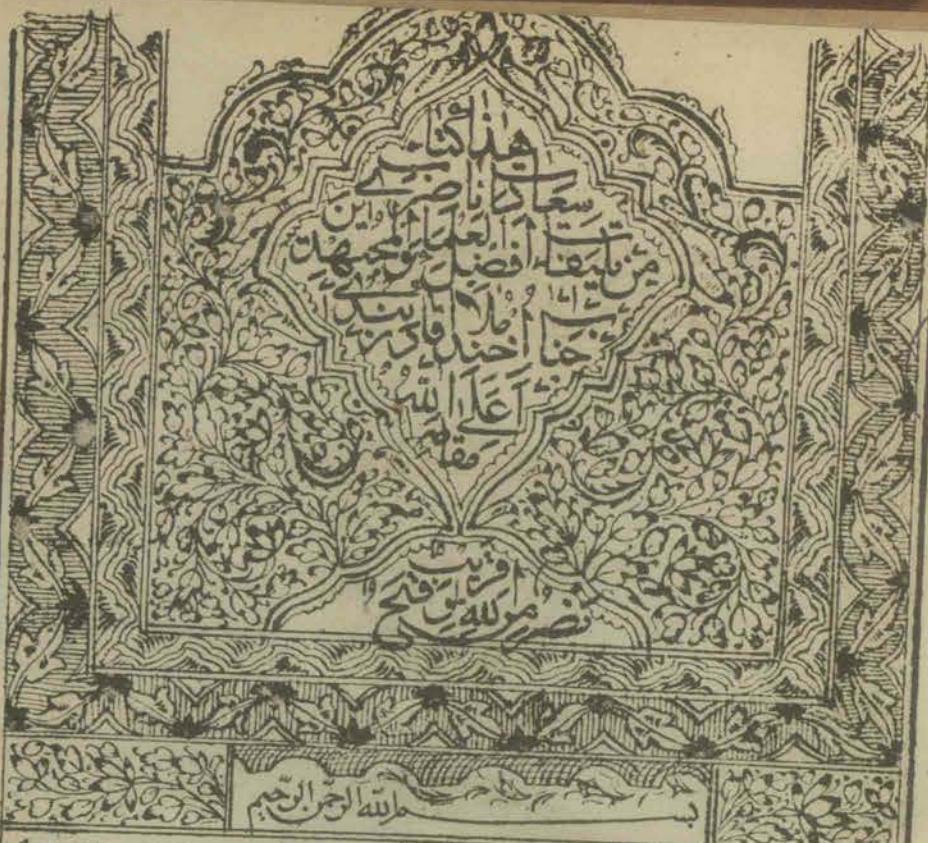 هذا كتاب
سعادات ناصری
من تالیفات افضل العلماء و المجتهدین
جناب اخند ملا اقا دربندی
اعلی الله
مقامه
نصر من الله و فتح قریب
بسم الله الرحمن الرحیم